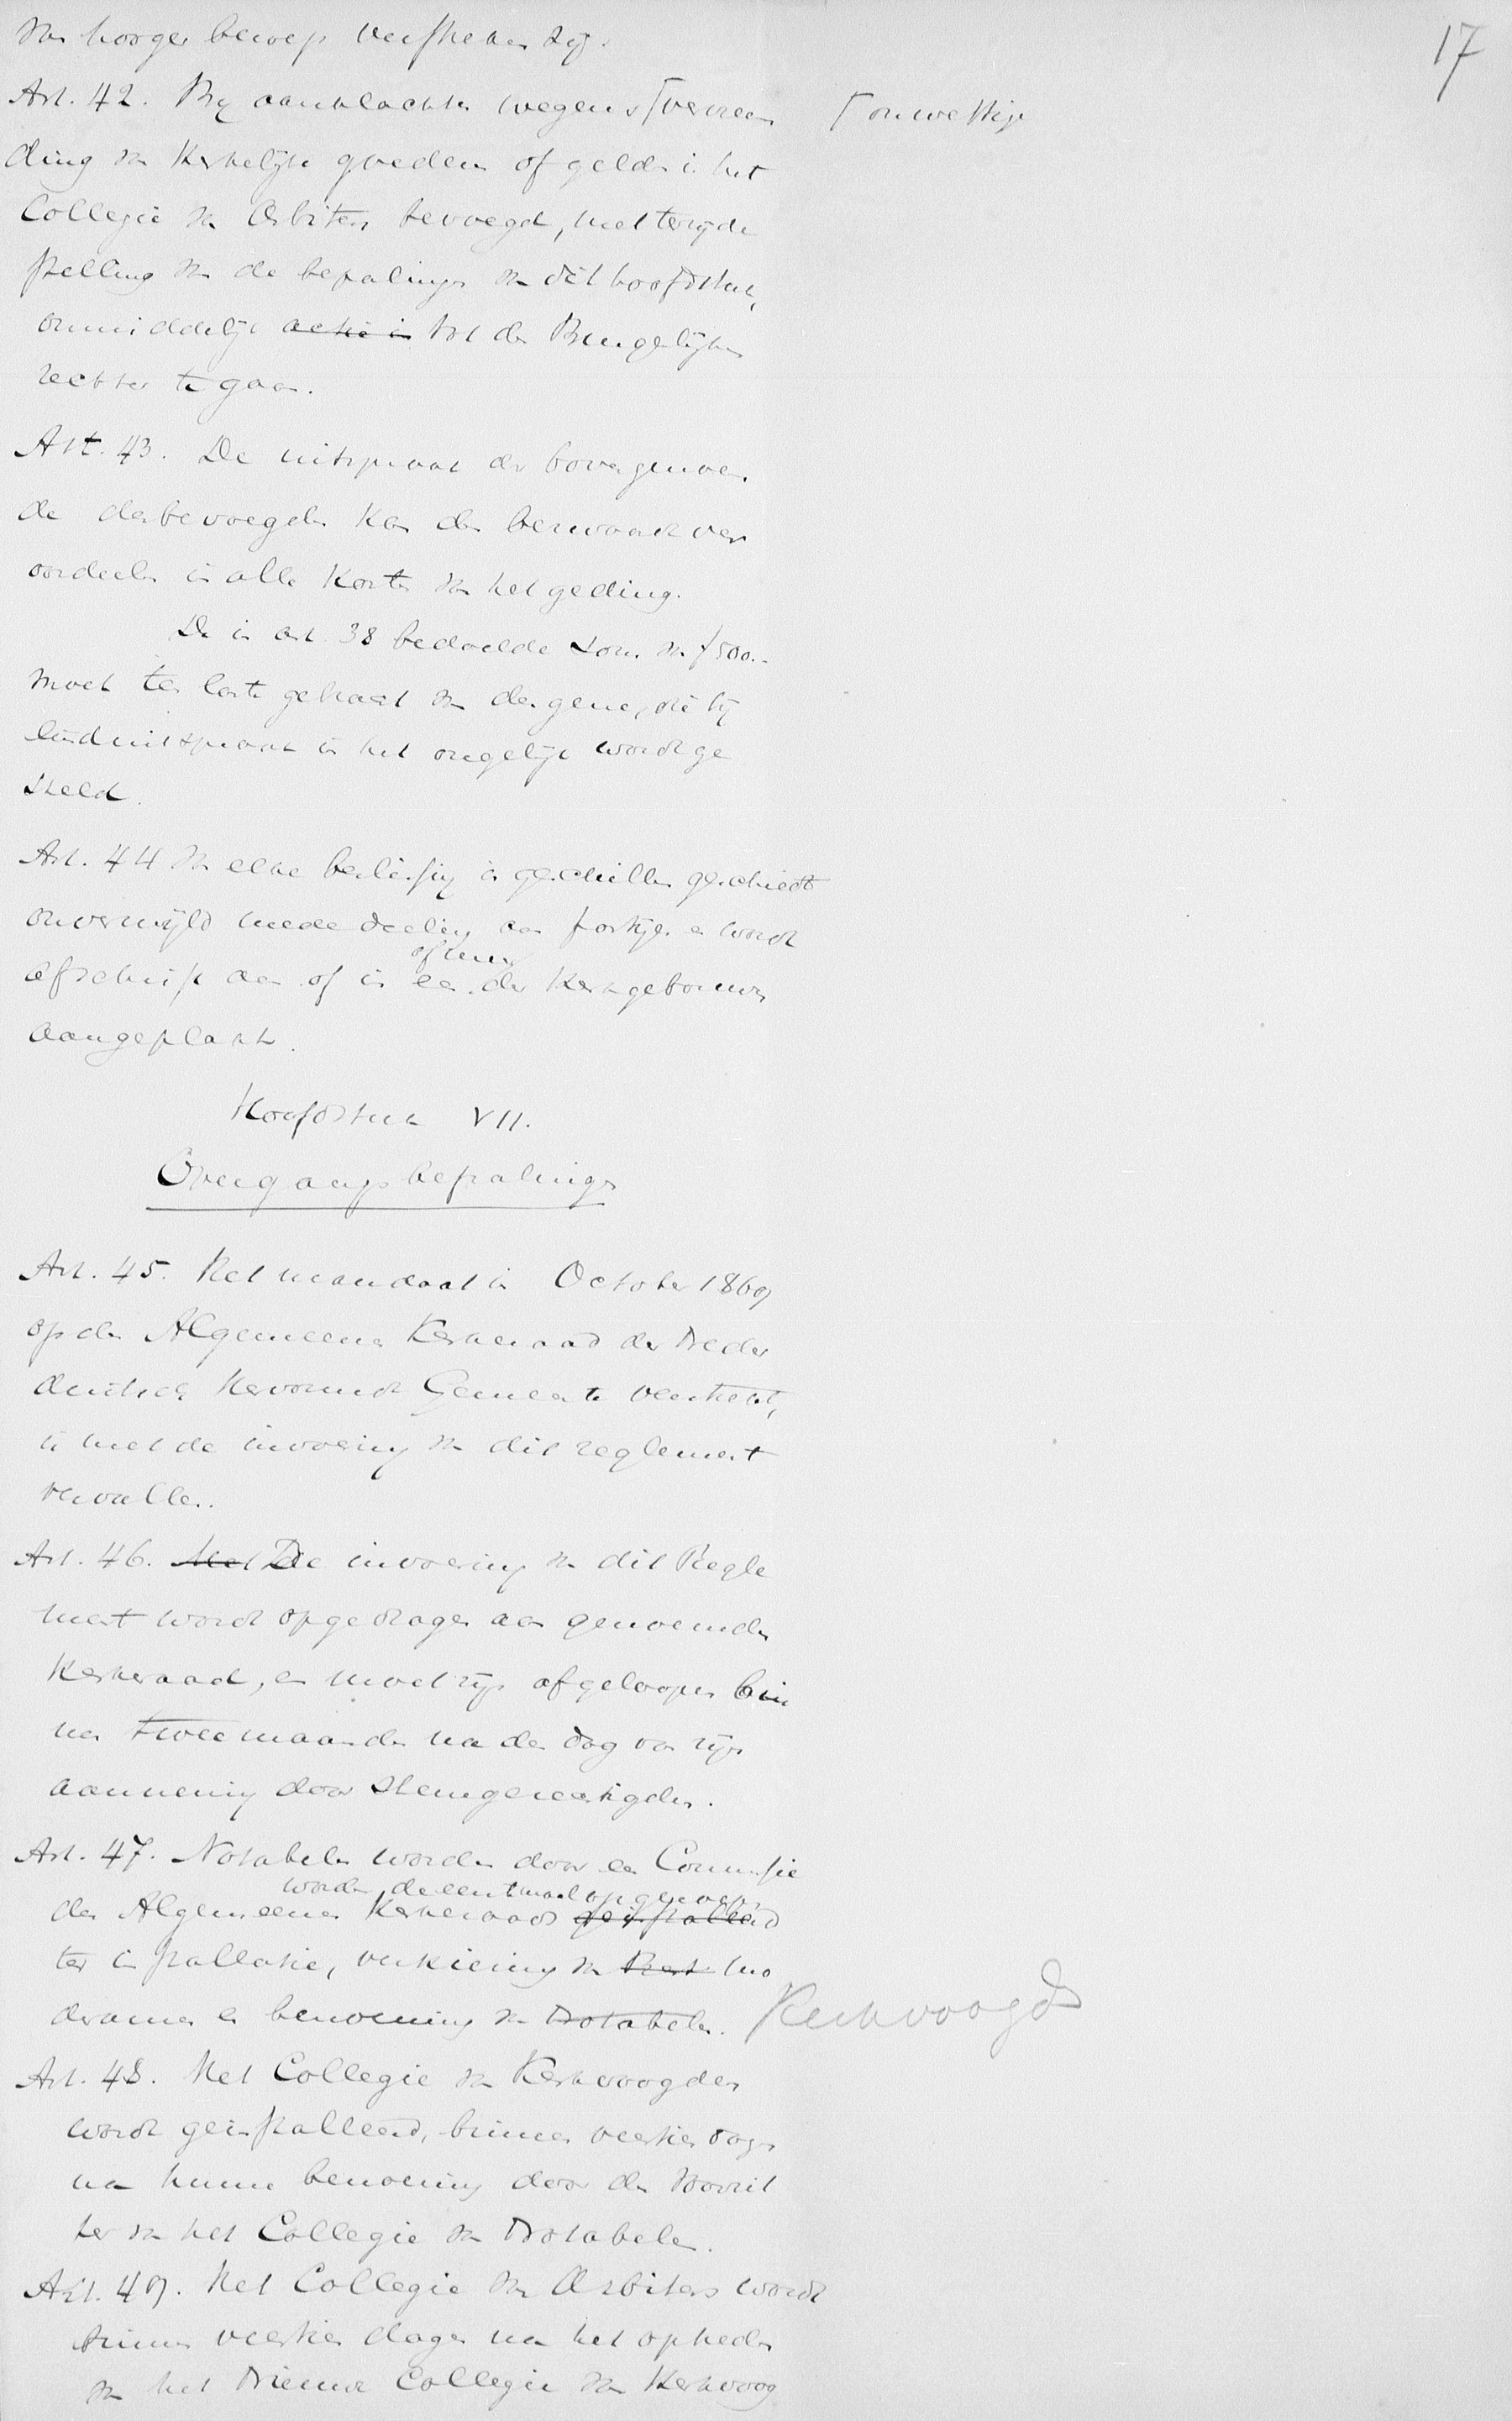 van hooger beroep verstreken zij.
17
Art. 42. Bij aanklachten wegens ⌈vervreem
⌈ onwettige
ding van Kerkelijke goederen of gelden is het
Collegie van Arbiters bevoegd, met terzijde
stelling van de bepalingen van dit hoofdstuk,
onmiddelijk actie in tot den Burgelijken
rechter te gaan.
Art. 43. De uitspraak der bovengenoem
de des bevoegden kan den bezwaarde ver
oordeelen in alle Kosten van het geding.
De in art. 38 bedoelde som van f 500.-
moet ten laste gebracht van dengene, die bij
einduitspraak in het ongelijk wordt ge
steld.
Art. 44 Van elke beslissing in geschillen geschiedt
onverwijld mededeeling aan partijen en wordt
of meer
afschrift aan of in een der Kerkgebouwen
aangeplakt.
Hoofdstuk VII.
Overgangsbepalingen
Art. 45. Het mandaat in October 1869
op den Algemeenen Kerkeraad der Neder
duitsch Hervormde Gemeente verstrekt,
is met de invoering van dit reglement
vervallen.
Art. 46. Met De invoering van dit Regle
ment wordt opgedragen aan genoemden
Kerkeraad, en moet zijn afgeloopen bin
nen twee maanden na den dag van zijn
aanneming door stemgerechtigden.
Art. 47. Notabelen worden door een Commissie
worden de eerstmaal opgeroepen
den Algemeenen Kerkeraad geinstalleerd
ter installatie, verkiezing van Best mo
deramen en benoeming van Notabelen. Kerkvoogd
Art. 48. Het Collegie van Kerkvoogden
wordt geinstalleerd, binnen veertien dagen
na hunne benoeming door den Voorzit
ter van het Collegie van Notabelen.
Art. 49. Het Collegie van Arbiters wordt
binnen veertien dagen na het optreden
van het Nieuwe Collegie van Kerkvoog